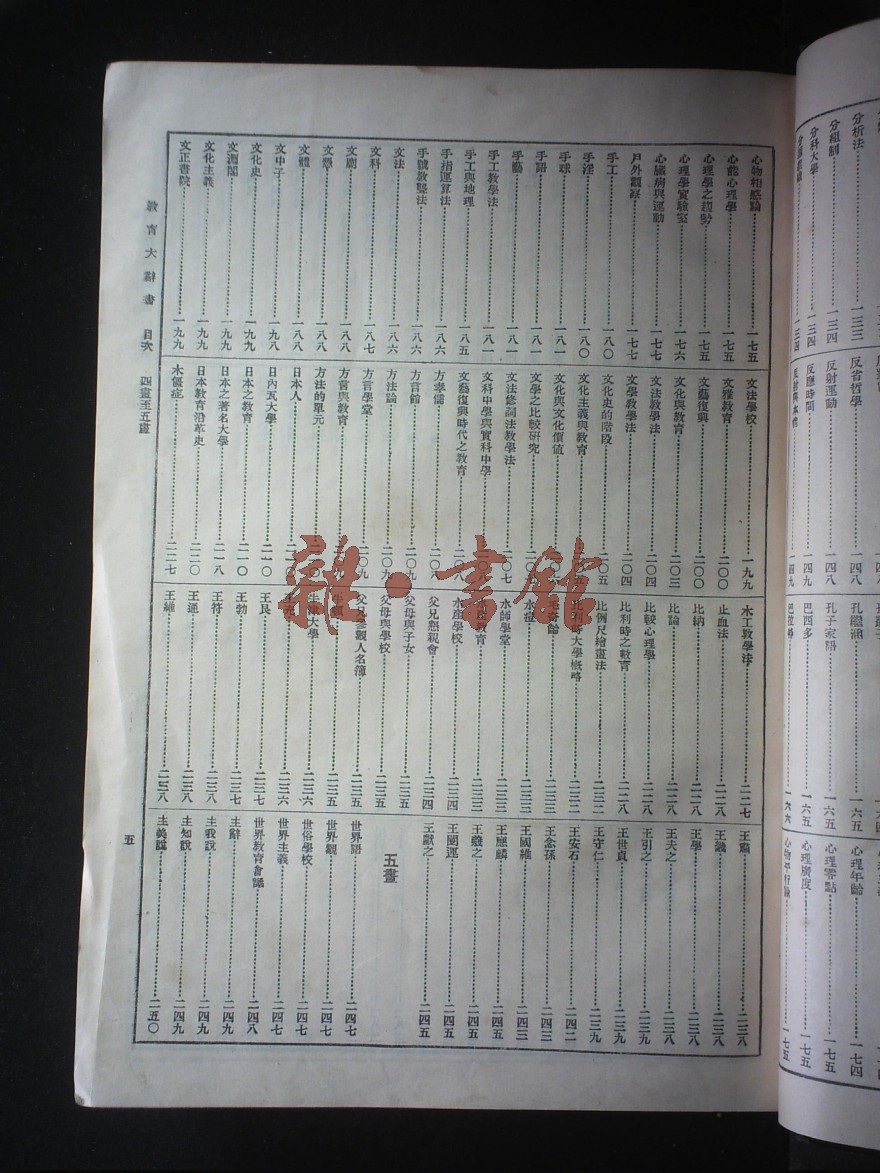 心物相感論 一七五
心能心理學 一七五
心理學之趨勢 一七五
心理學實驗室 一七六
心臟病與運動 一七七
戶外觀察 一七七
手工 一八〇
手淫 一八〇
手球 一八一
手語 一八一
手藝 一八一
手工教學法 一八一
手工與地理 一八五
手指運算法 一八六
手號教聾法 一八六
文法 一八六
文科 一八七
文廟 一八八
文憑 一八八
文體 一八八
文中子 一九九
文化史 一九九
文淵閣 一九九
文化主義 一九九
文正書院 一九九
文法學校 一九九
文雅教育 二〇〇
文藝復興 二〇〇
文化與教育 二〇三
文法教學法 二〇四
文學教學法 二〇四
文化史的階段 二〇五
文化主義與教育
文化與文化價值
文學之比較研究
文法修詞法教學法 二〇七
文科中學與實科中學
文藝復興時代之教育 二〇八
方孝孺 二〇八
方言館 二〇九
方法論 二〇九
方言學堂 二〇九
方言與教育
方法的單元
日本人
日內瓦大學 二一〇
日本之教育 二一〇
日本之著名大學 二一八
日本教育沿革史 二二〇
木僵症 二二七
木工教學法 二二七
止血法 二二八
比納 二二八
比論 二二八
比較心理學 二二八
比利時之教育 二二八
比例尺繪畫法 二三二
比利時大學概略 二三二
水師學堂 二三三
水產學校 二三四
父兄懇親會 二三四
父母與子女 二三五
父母與學校 二三五
父兄參觀人名簿 二三五
牛津大學 二三六
王艮 二三七
王勃 二三七
王符 二三八
王通 二三八
王維 二三八
王肅 二三八
王畿 二三八
王學 二三八
王夫之 二三八
王引之 二三九
王世貞 二三九
王守仁 二三九
王安石 二四二
王念孫 二四三
王國維 二四三
王應麟 二四五
王羲之 二四五
王闓運 二四五
王獻之 二四五
五畫
世界語 二四七
世界觀 二四七
世俗學校 二四七
世界主義 二四七
世界教育會議 二四八
主辭 二四九
主我說 二四九
主知說 二四九
主義說 二五〇
教育大辭書 目次 四畫至五畫
五
雜·書館
分析法 一三三
分組制 一三四
分科大學 一三四
反省哲學 一四八
反射運動 一四八
反應時間 一四九
孔繼涵 一六五
孔子家語 一六五
巴西多 一六五
心理年齡 一七四
心理零點 一七五
心理廣度 一七五